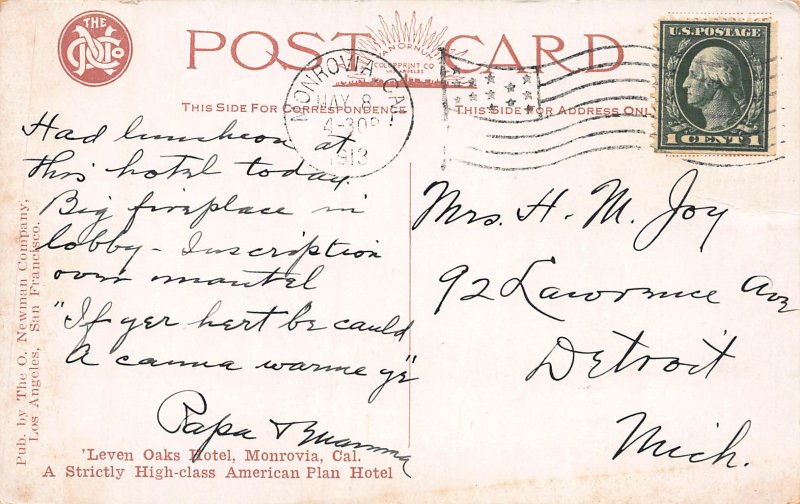 THE
N Co
POST CARD
VAN ORNUM
COLORPRINT CO
LOS ANGELES
MONROVIA, CAL.
MAY 8
4-30P
1913
U.S. POSTAGE
1 CENT 1
THIS SIDE FOR CORRESPONDENCE
THIS SIDE FOR ADDRESS ONLY
Had luncheon at
this hotel today.
Big fireplace in
lobby - Inscription
over mantel
"If yer hert be cauld
A canna warme ye"
Papa & Mamma
Mrs. H. M. Joy
92 Lawrence Ave
Detroit
Mich.
Pub. by The O. Newman Company,
Los Angeles, San Francisco.
'Leven Oaks Hotel, Monrovia, Cal.
A Strictly High-class American Plan Hotel